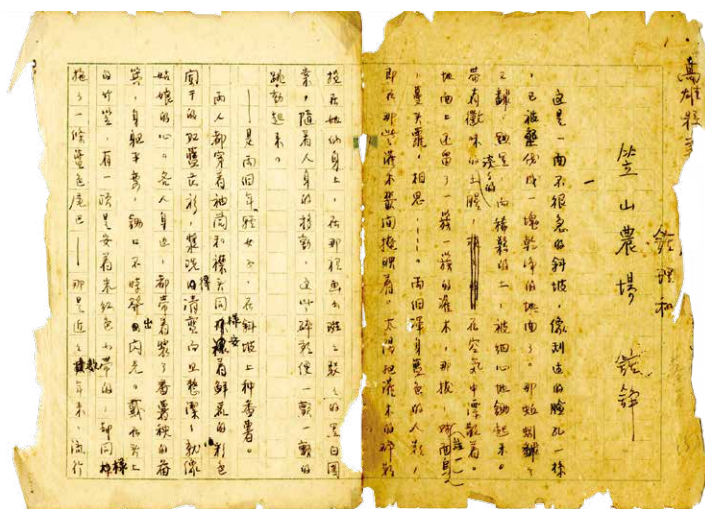 高雄縣
鍾理和
笠山農場 鍾錚
一
這是一面不很急的斜坡,像刮過的臉孔一樣
,已被墾伐成一塊乾淨的地面了。那
鋤是,而積鬆的土,被細心地鋤起來。
帶有黴味的土腥,淡淡的在空気中漂散着。
地面上还留了一簇一簇的灌木,那拔,
,相思……。兩個渾身藍色的人影,
即在那些灌木叢间掩映着。太陽把灌木的碎影
投在她們身上,在那裡画出斑斑駁駁的黑白図
案,隨着人身的移動,這些碎影便一顫一顫的
跳動起來。
——是兩個年輕女子,在斜坡上种番薯。
兩人都穿着袖筒和襟頭同樣安着鮮麗的彩色
闌干的紅藍長衫,漿洗得清爽而且整潔,勑像
姑娘的心。各人身边,都帶着裝了番薯秧的畚
箕,身軀半彎,鋤口不時碎出閃光。戴在头上
的竹笠,有一頂是安着朱紅色小帶的,卻同樣
拖了一條藍色尾巴——那是近數年來,流行